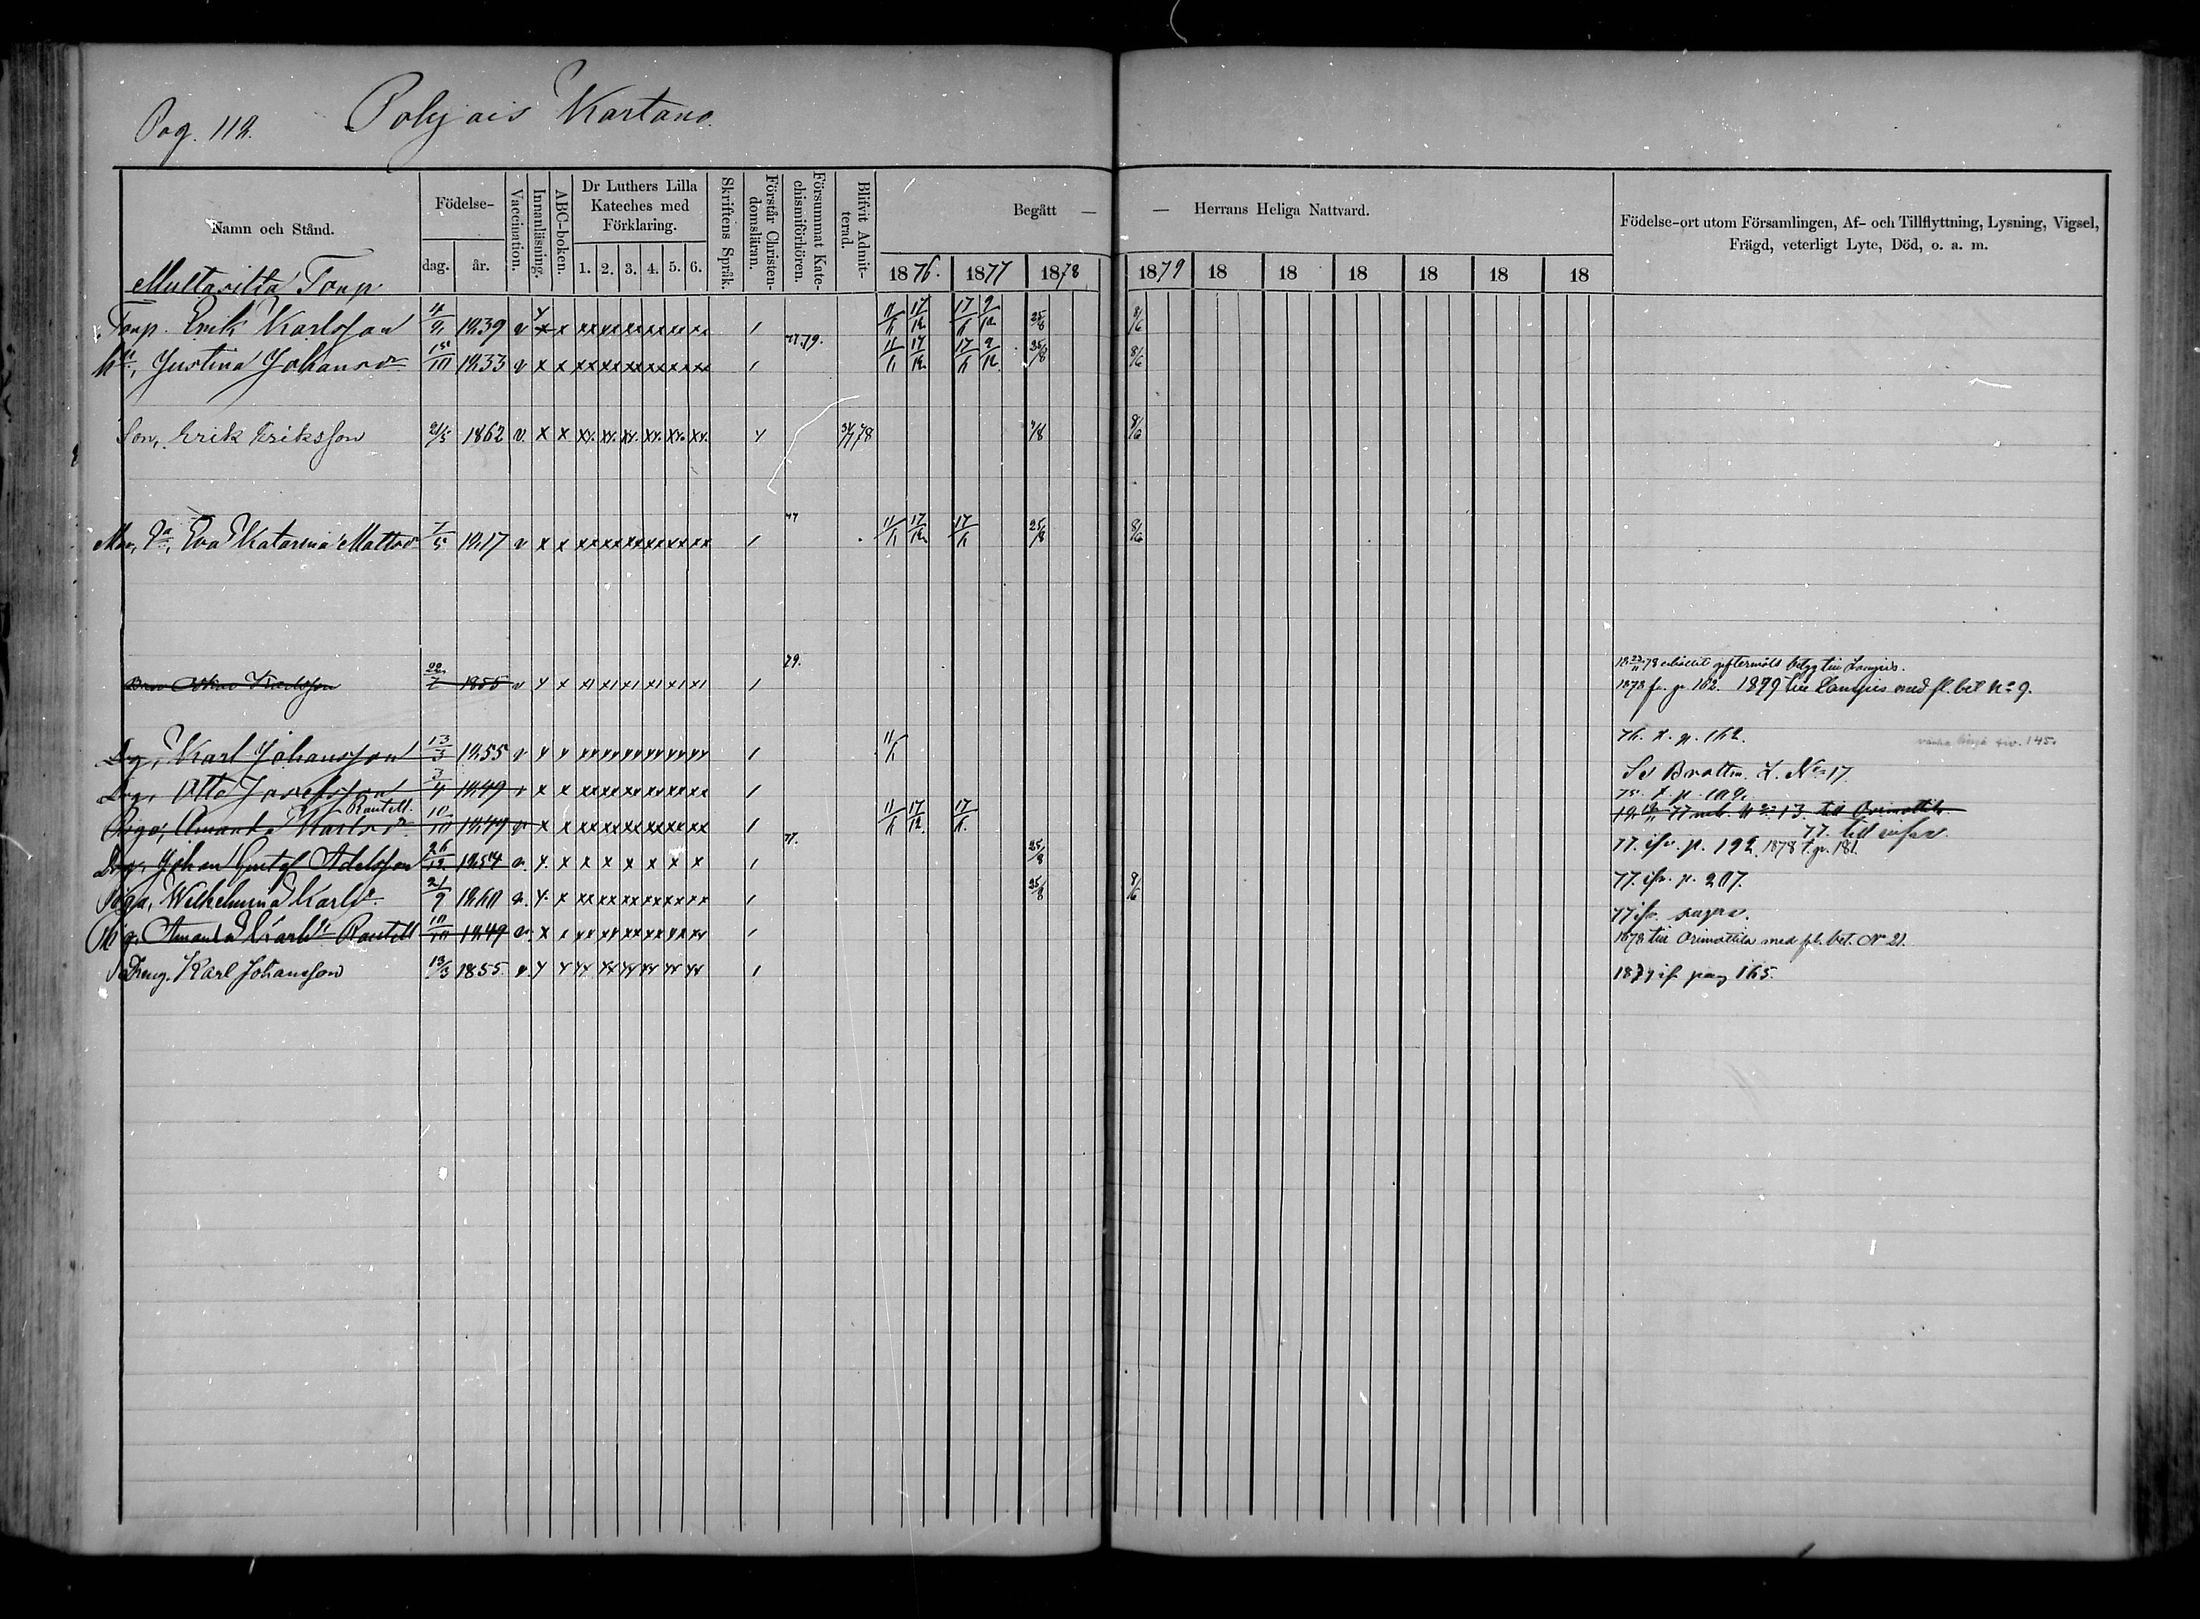 Pag. 112. Pohjois Kartano.
Namn och Stånd.
Födelse-
dag. år.
Vaccination.
Innanläsning.
ABC-boken.
Dr Luthers Lilla
Kateches med
Förklaring.
1. 2. 3. 4. 5. 6.
Skriftens Språk.
Förstår Christen-
domsläran.
Försummat Kate-
chismiförhören.
Blifvit Admit-
terad.
Begått — — Herrans Heliga Nattvard.
1876. 1877 1878 1879 18 18 18 18 18 18
Födelse-ort utom Församlingen, Af- och Tillflyttning, Lysning, Vigsel,
Frägd, veterligt Lyte, Död, o. a. m.
Multasilta Torp
Torp. Erik Karlsson 1839 v x x xx xx xx xx xx xx / 11/6 17/12 17/6 9/12 25/8 8/6
77.79.
Justina Johansdr 1833 v x x xx xx xx xx xx xx / 11/6 17/12 17/6 9/12 25/8 8/6
Son, Erik Eriksson 1862 v. x x xx. xx. xx. xx. xx. xx. 78 8/6
77
Eva Katarina Mattsdr 7/5 1817 v x x xx xx xx xx xx xx / 11/6 17/12 17/6 25/8 8/6
79.
Karlsson 1855 v x x /
78 till Lampis.
1878 fr. p. 162. 1879 till Lampis med fl. bet. No 9.
Dr, Karl Johansson 13/3 1855 v x x / 11/6 76. f. p. 162.
Otto 3/4 1849 v x x xx xx xx xx xx xx / No 17
Rautell.
Piga, Amanda Karlsdr 10/10 1849 v x x xx xx xx xx xx xx / 11/6 17/12 17/6 77 No 13. till Orimattila
77.
Dr, Johan Gustaf Adelsson 26/12 1854 v. x x x x x x x x / 25/8 77. ifr. p. 192. 1878 f. p. 181.
Piga, Wilhelmina Karlsdr 21/9 1860 v. x. x xx xx xx xx xx xx / 25/8 8/6 77. ifr. p. 207.
Amanda Karlsdr Rautell 10/10 1849 v. x x xx xx xx xx xx xx / 77 ifr.
1878 till Orimattila med fl. bet. No 21.
Dreng. Karl Johansson 13/3 1855 v. x x xx xx xx xx xx xx / 1879 if pag 165.